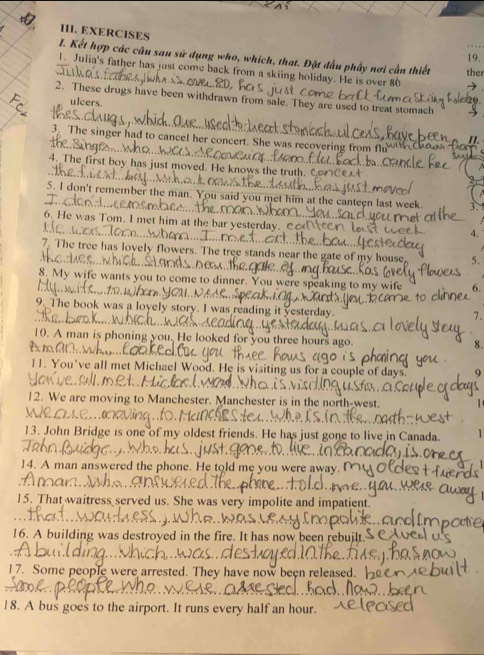 III. EXERCISES
1. Kết hợp các câu sau sử dụng who, which, that. Đặt dấu phẩy nơi cần thiết
19.
1. Julia's father has just come back from a skiing holiday. He is over 80
ther
Julia's father, who is over 80, has just come back from a skiing holiday.
2. These drugs have been withdrawn from sale. They are used to treat stomach
ulcers.
thes drugs, which are used to treat stomach ulcers, have been
withdrawn from
3. The singer had to cancel her concert. She was recovering from flu
the singer who was recovering from flu had to cancle her
4. The first boy has just moved. He knows the truth. concert
the first boy who knows the truth has just moved
5. I don't remember the man. You said you met him at the canteen last week.
3.
I don't remember the man whom you said you met at the
6. He was Tom. I met him at the bar yesterday. canteen last week
4.
He was Tom whom I met at the bar yesterday
7. The tree has lovely flowers. The tree stands near the gate of my house.
5.
the tree which stands near the gate of my house has lovely flowers
8. My wife wants you to come to dinner. You were speaking to my wife
6.
My wife to whom you were speaking, wants you to come to dinner
9. The book was a lovely story. I was reading it yesterday.
7.
the book which was reading yestaday was a lovely story
10. A man is phoning you. He looked for you three hours ago.
8.
A man who looked for you three hours ago is phoning you.
11. You've all met Michael Wood. He is visiting us for a couple of days.
9
You've all met Michael Wood who is visiting us for a couple of days
12. We are moving to Manchester. Manchester is in the north-west.
We are moving to Manchester who is in the north-west.
13. John Bridge is one of my oldest friends. He has just gone to live in Canada.
John Bridge, who has just gone to live in Canada, is one of
14. A man answered the phone. He told me you were away. my oldest friends
A man who answered the phone told me you were away
15. That waitress served us. She was very impolite and impatient.
that waitress, who was very impolite and impatie
16. A building was destroyed in the fire. It has now been rebuilt. served us
A building which was destroyed in the fire, has now
17. Some people were arrested. They have now been released. been rebuilt.
Some people who were arrested had now been
18. A bus goes to the airport. It runs every half an hour. released